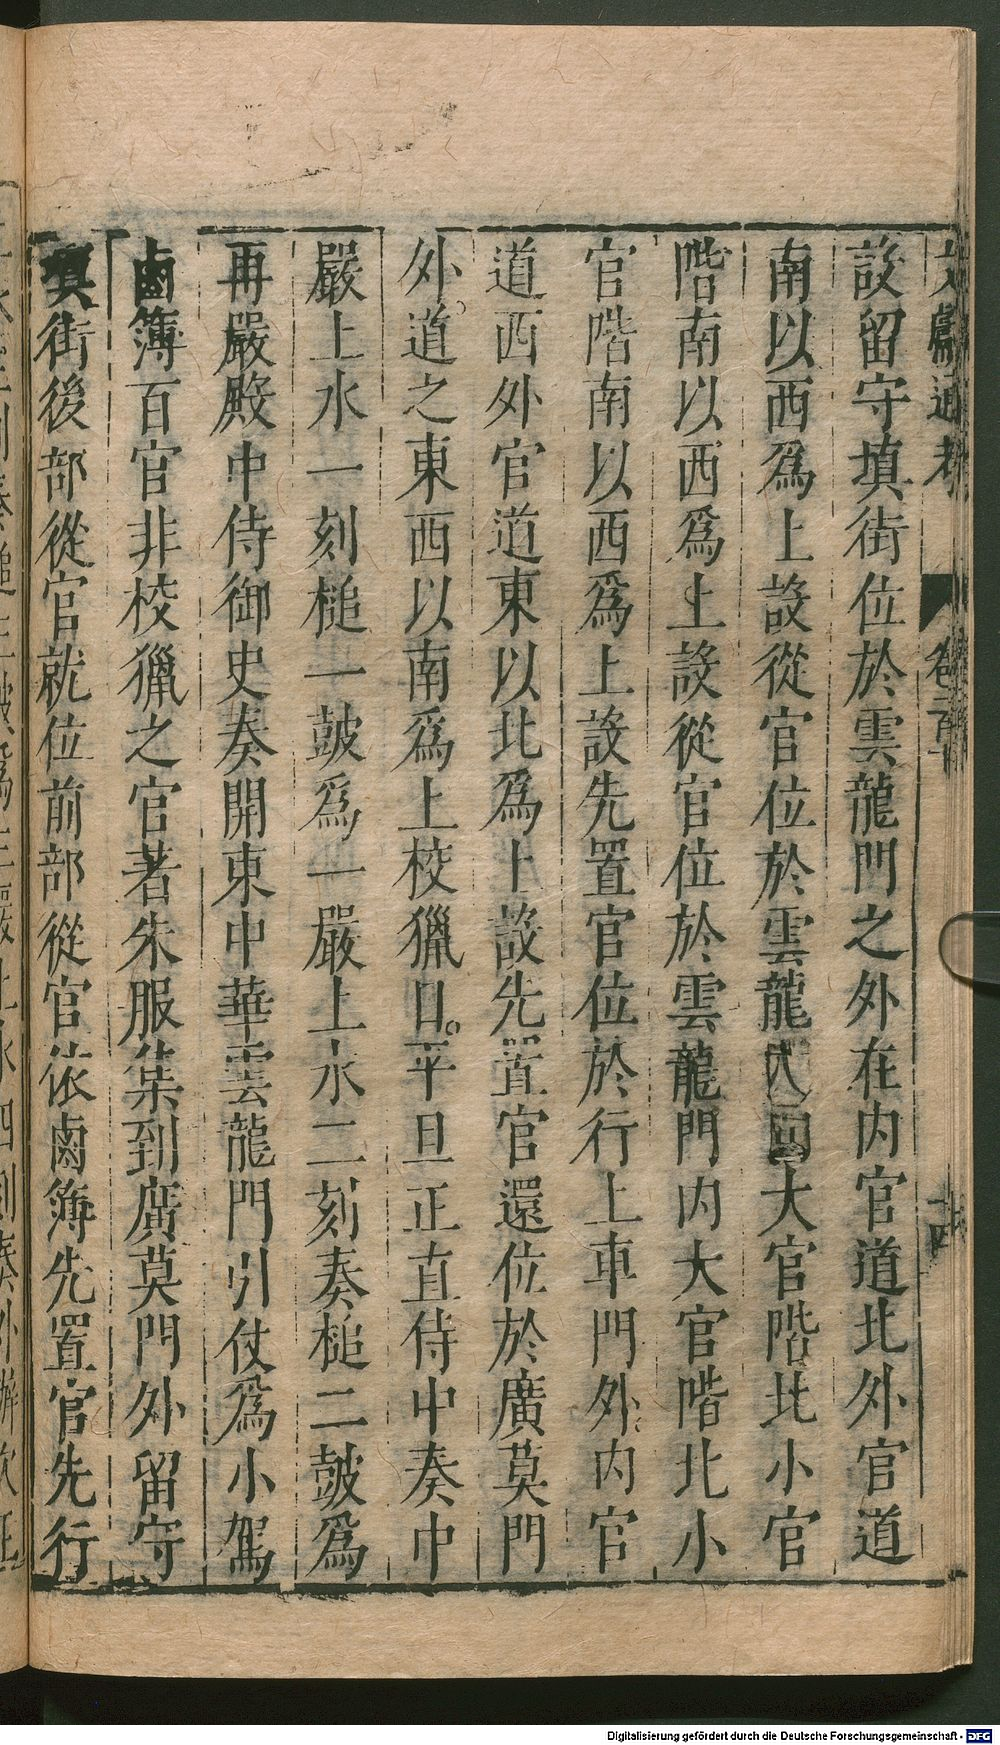 文獻通考 卷一百 十四
設留守填街位於雲龍門之外在内官道北外官道
南以西爲上設從官位於雲龍大官階北小官
階南以西爲上設從官位於雲龍門内大官階北小
官階南以西爲上設先置官位於行上車門外内官
道西外官道東以北爲上設先置官還位於廣莫門
外道之東西以南爲上校獵日平旦正直侍中奏中
嚴上水一刻槌一皷爲一嚴上水二刻奏槌二皷爲
再嚴殿中侍御史奏開東中華雲龍門引仗爲小駕
鹵簿百官非校獵之官著朱服集到廣莫門外留守
填街後部從官就位前部從官依鹵簿先置官先行
Digitalisierung gefördert durch die Deutsche Forschungsgemeinschaft - DFG